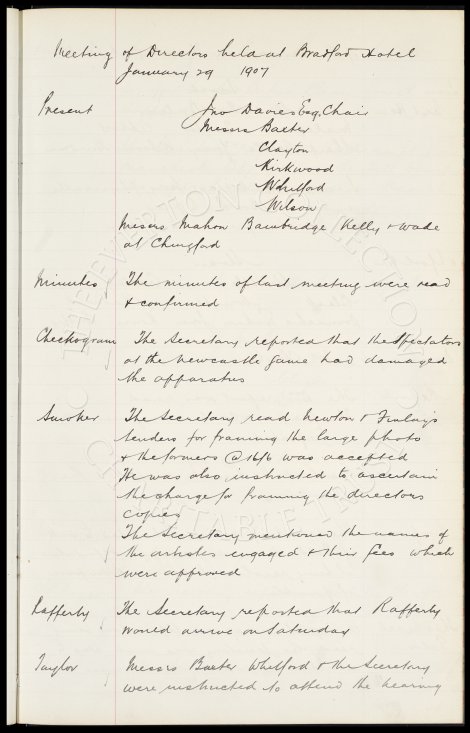 Meeting of Directors held at Bradford Hotel
January 29 1907
Present Jno Davies Esq. Chair
Messrs Baxter
Clayton
Kirkwood
Whitford
Wilson
Messrs Mahon Bainbridge Kelly & Wade
at Chingford
Minutes The minutes of last meeting were read
& confirmed
Checkogram The Secretary reported that the Spectators
at the Newcastle game had damaged
the apparatus
Smoker The Secretary read Newton & Finlay's
tenders for framing the large photo
& the formers @ 16/6 was accepted
He was also instructed to ascertain
the charge for framing the directors
copies
The Secretary mentioned the names of
the artistes engaged & their fees which
were approved
Rafferty The Secretary reported that Rafferty
would arrive on Saturday
Taylor Messrs Baxter Whitford & the Secretary
were instructed to attend the hearing
THE EVERTON COLLECTION
CHARITABLE TRUST